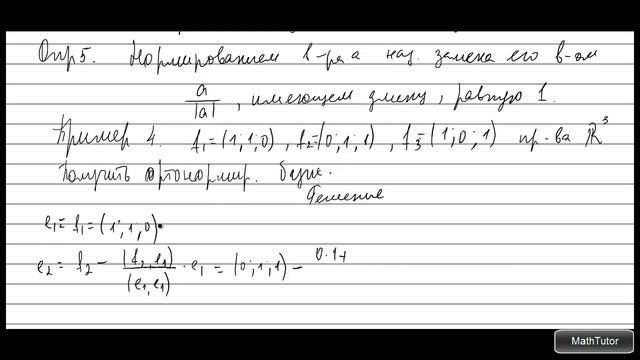 Опр 5. Нормированием в-ра a наз. замена его в-ом
a/|a| , имеющем длину, равную 1.
Пример 4. f₁=(1;1;0), f₂=(0;1;1), f₃=(1;0;1) пр-ва ℝ³
Получить ортонормир. базис.
Решение
e₁=f₁=(1;1;0)
e₂ = f₂ - (f₂,e₁)/(e₁,e₁) · e₁ = (0;1;1) - 0·1+
MathTutor